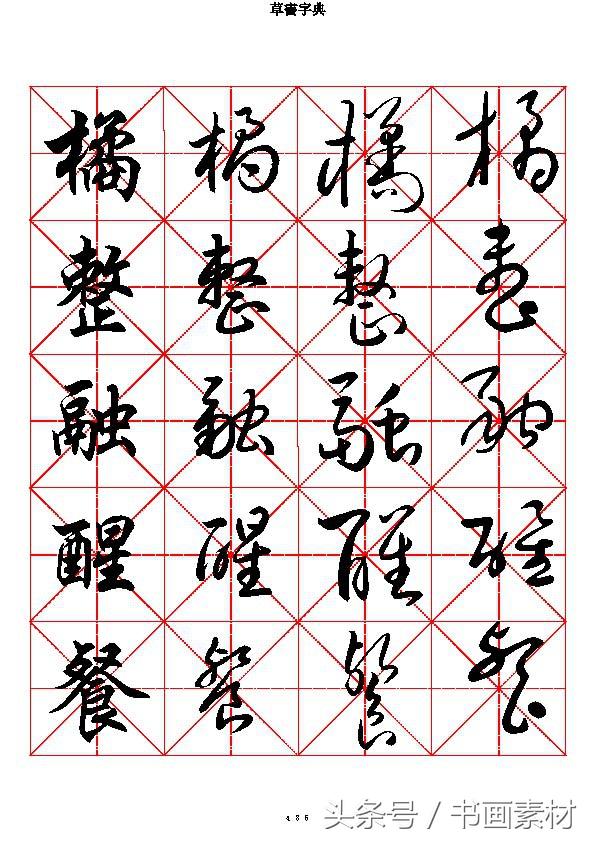 草書字典
橘 橘 橘 橘
整 整 整 整
融 融 融 融
醒 醒 醒 醒
餐 餐 餐 餐
436
头条号 / 书画素材